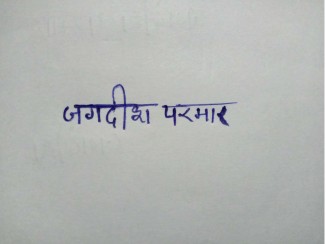 जगदीश परमार